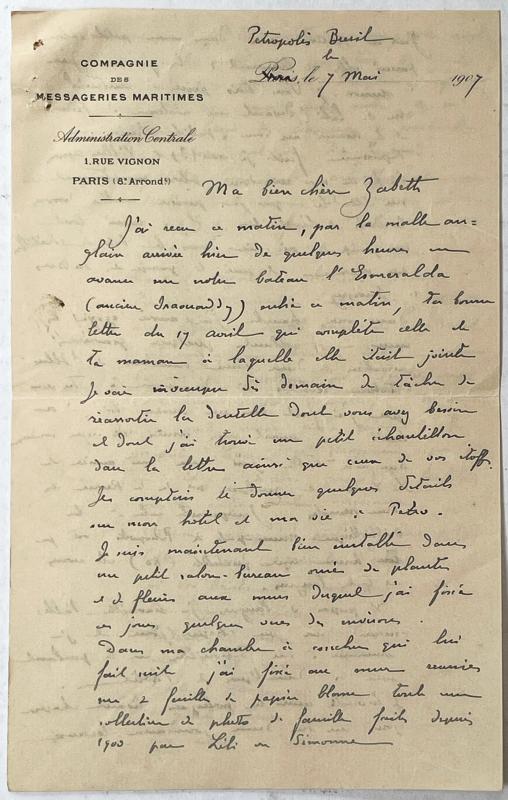 COMPAGNIE
DES
MESSAGERIES MARITIMES
Administration Centrale
1, RUE VIGNON
PARIS (8e Arrondt)
Petropolis Bresil
le
Paris, le 7 Mai 1907
Ma bien chère Zabeth
J'ai reçu ce matin, par la malle an=
glaise arrivée hier de quelques heures en
avance sur notre bateau l'Esmeralda
(ancien Iraouaddy) entré ce matin, ta bonne
lettre du 17 avril qui complète celle de
ta maman à laquelle elle était jointe
Je vais m'occuper dès demain de tâcher de
réassortir la dentelle dont vous avez besoin
et dont j'ai trouvé un petit échantillon
dans la lettre ainsi que ceux de vos étoffes.
Je comptais te donner quelques détails
sur mon hôtel et ma vie à Petro.
Je suis maintenant bien installé dans
un petit salon-bureau orné de plantes
et de fleurs aux murs duquel j'ai fixé
ces jours quelques vues des environs.
Dans ma chambre à coucher qui lui
fait suite j'ai fixé au mur réunies
sur 2 feuilles de papier blanc toute une
collection de photos de famille faites depuis
1900 par Lili ou Simonne